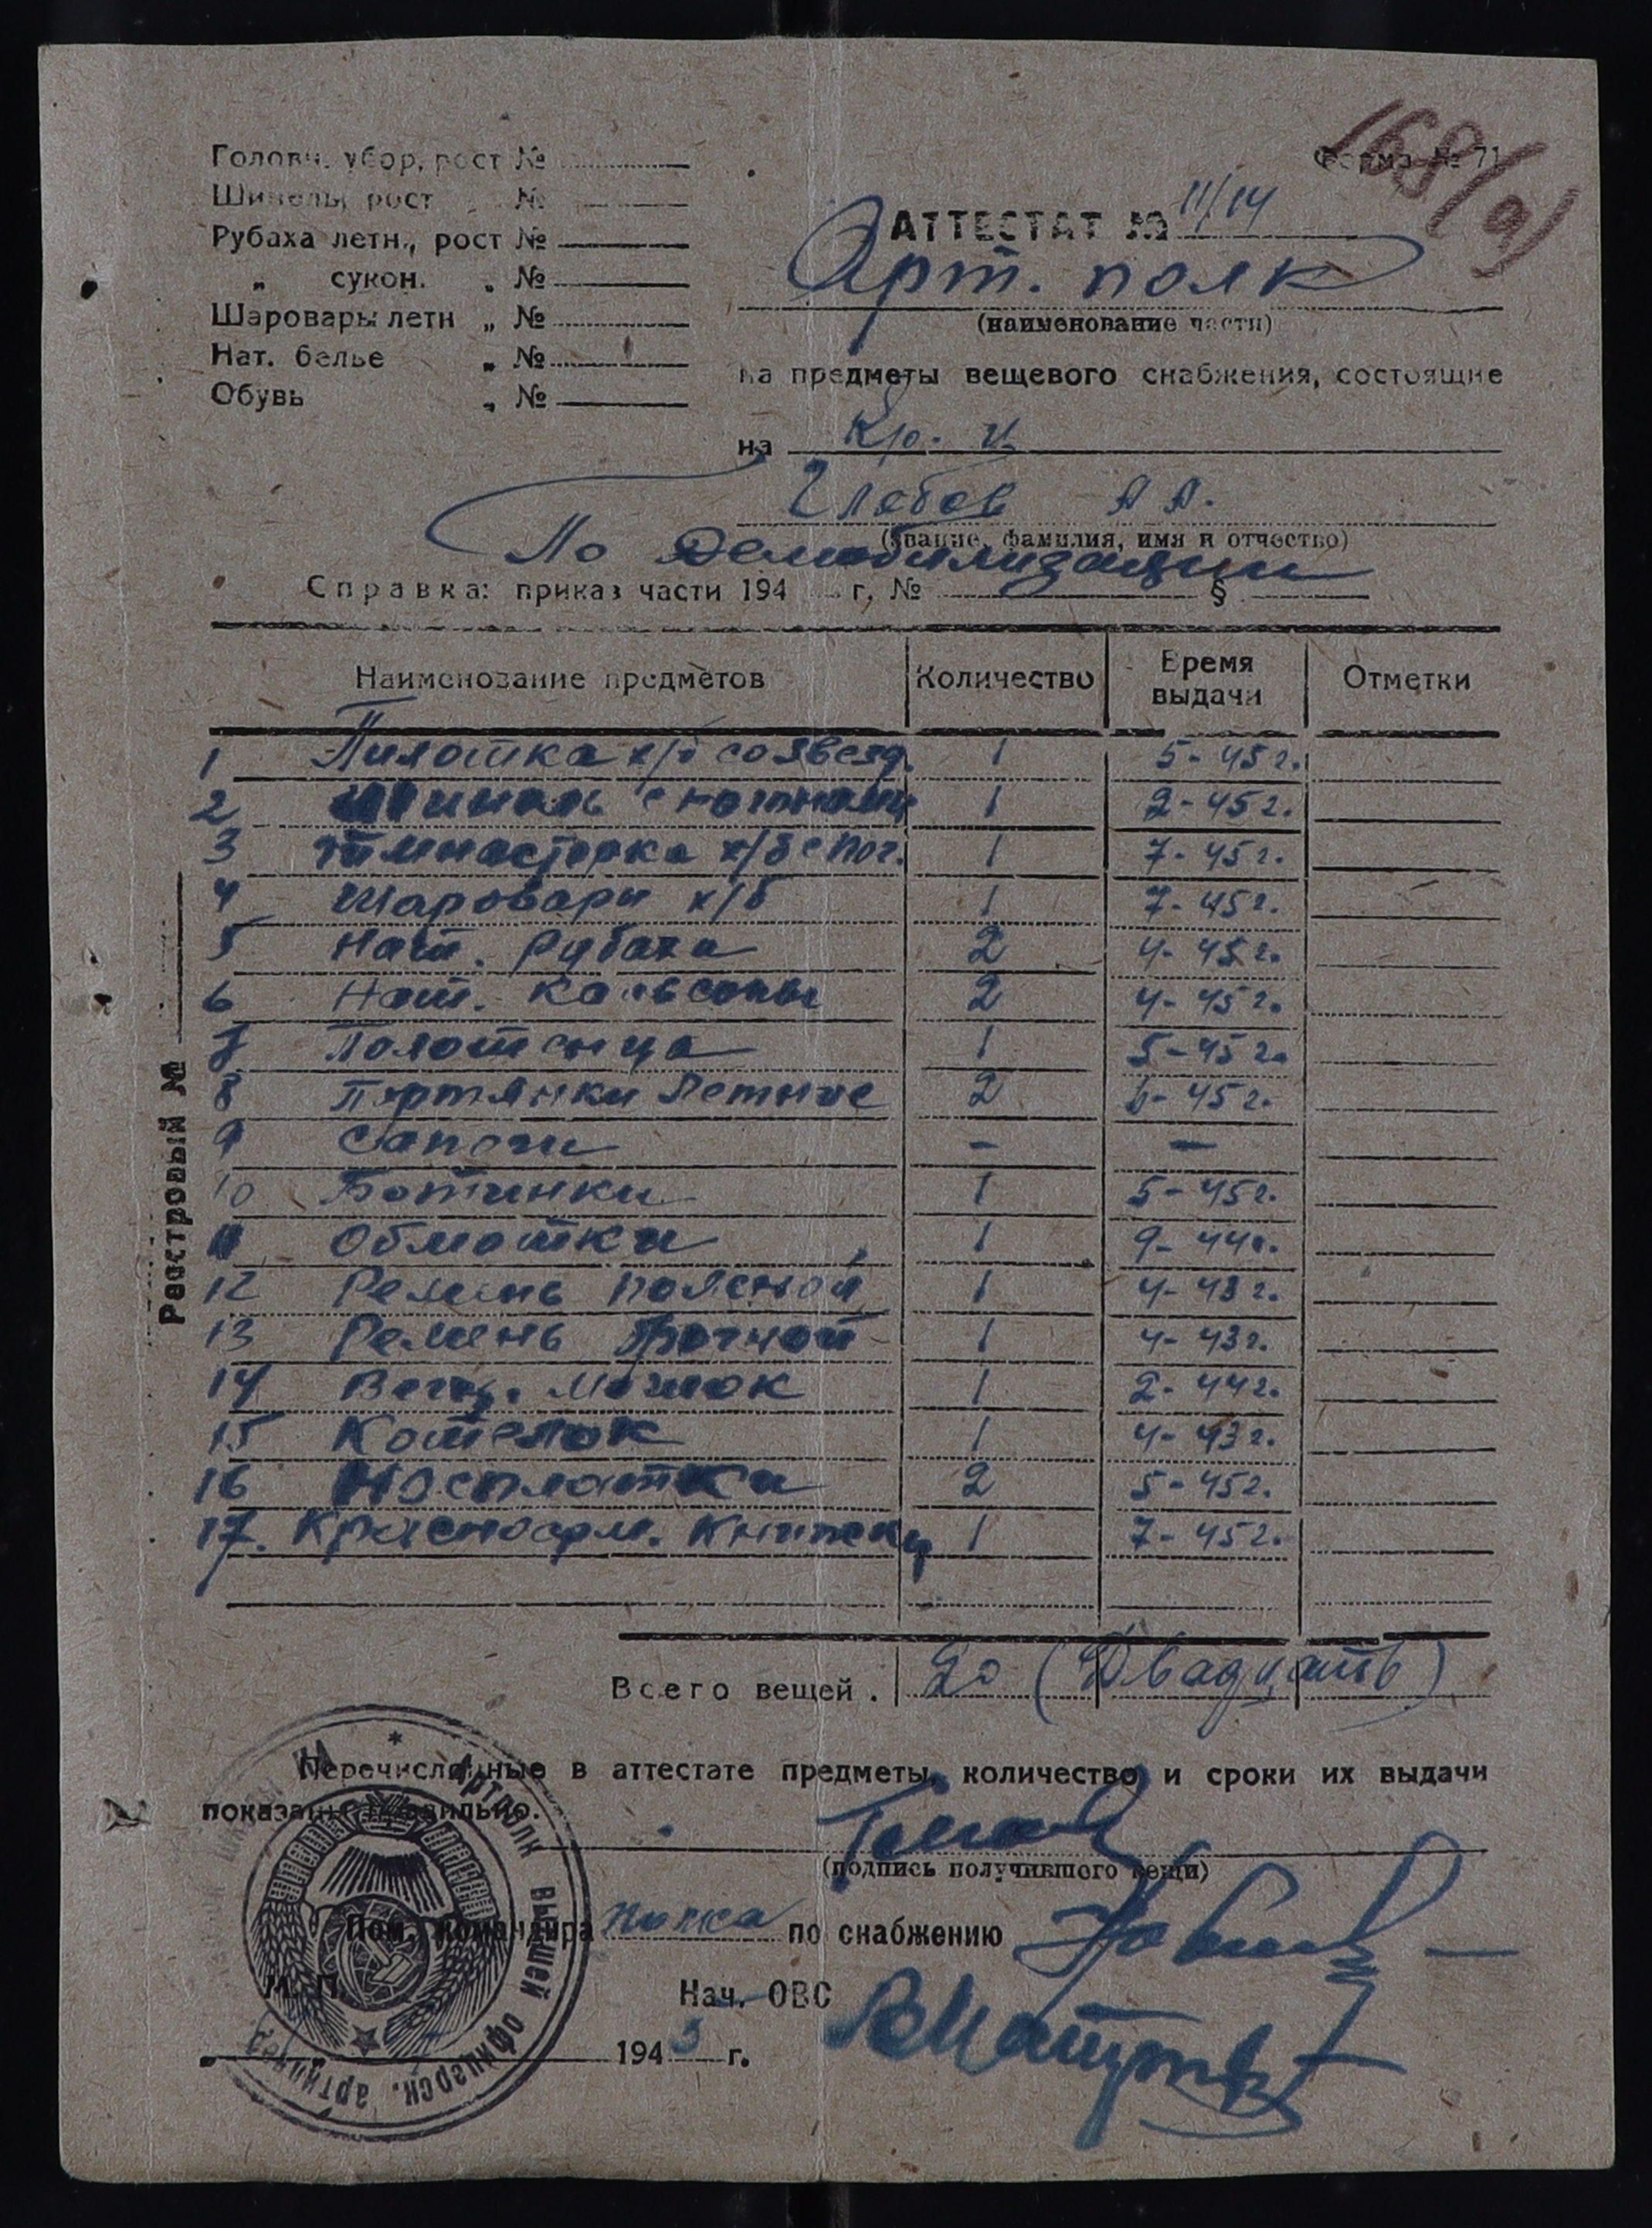 168/(9)
Форма № 71
Головн. убор, рост №
Шинель, рост № 
Рубаха летн., рост №
„ сукон. „ №
Шаровары летн „ №
Нат. белье „ №
Обувь „ №
АТТЕСТАТ № 11/14
Арт. полк
(наименование части)
на предметы вещевого снабжения, состоящие
на Кр-ц
Глебов А А.
(звание, фамилия, имя и отчество)
По демобилизации
Справка: приказ части 194 г. № §
Наименование предметов Количество Время выдачи Отметки
1 Пилотка х/б со звезд. 1 5-45 г.
2 Шинель с погонами 1 2-45 г.
3 Гимнастерка х/б с пог. 1 7-45 г.
4 Шаровары х/б 1 7-45 г.
5 Нат. рубахи 2 4-45 г.
6 Нат. кальсоны 2 4-45 г.
7 Полотенца 1 5-45 г.
8 Портянки летние 2 6-45 г.
9 Сапоги - -
10 Ботинки 1 5-45 г.
11 Обмотки 1 9-44 г.
12 Ремень поясной 1 4-43 г.
13 Ремень брючной 1 4-43 г.
14 Вещ. мешок 1 2-44 г.
15 Котелок 1 4-43 г.
16 Носплатки 2 5-45 г.
17. Красноарм. книжка 1 7-45 г.
Реестровый №
Всего вещей. 20 (Двадцать)
Перечисленные в аттестате предметы, количество и сроки их выдачи
показаны правильно.
(подпись получившего вещи)
Пом. командира полка по снабжению
М. П.
Нач. ОВС
1945 г.
* Артполк Высшей офицерск. артиллер. школы КА